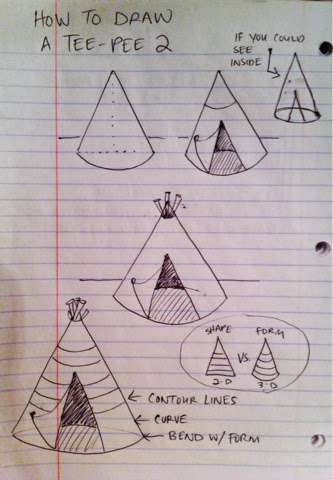 HOW TO DRAW
A TEE-PEE 2
IF YOU COULD
SEE
INSIDE
SHAPE
FORM
VS.
2-D
3-D
CONTOUR LINES
CURVE
BEND W/FORM